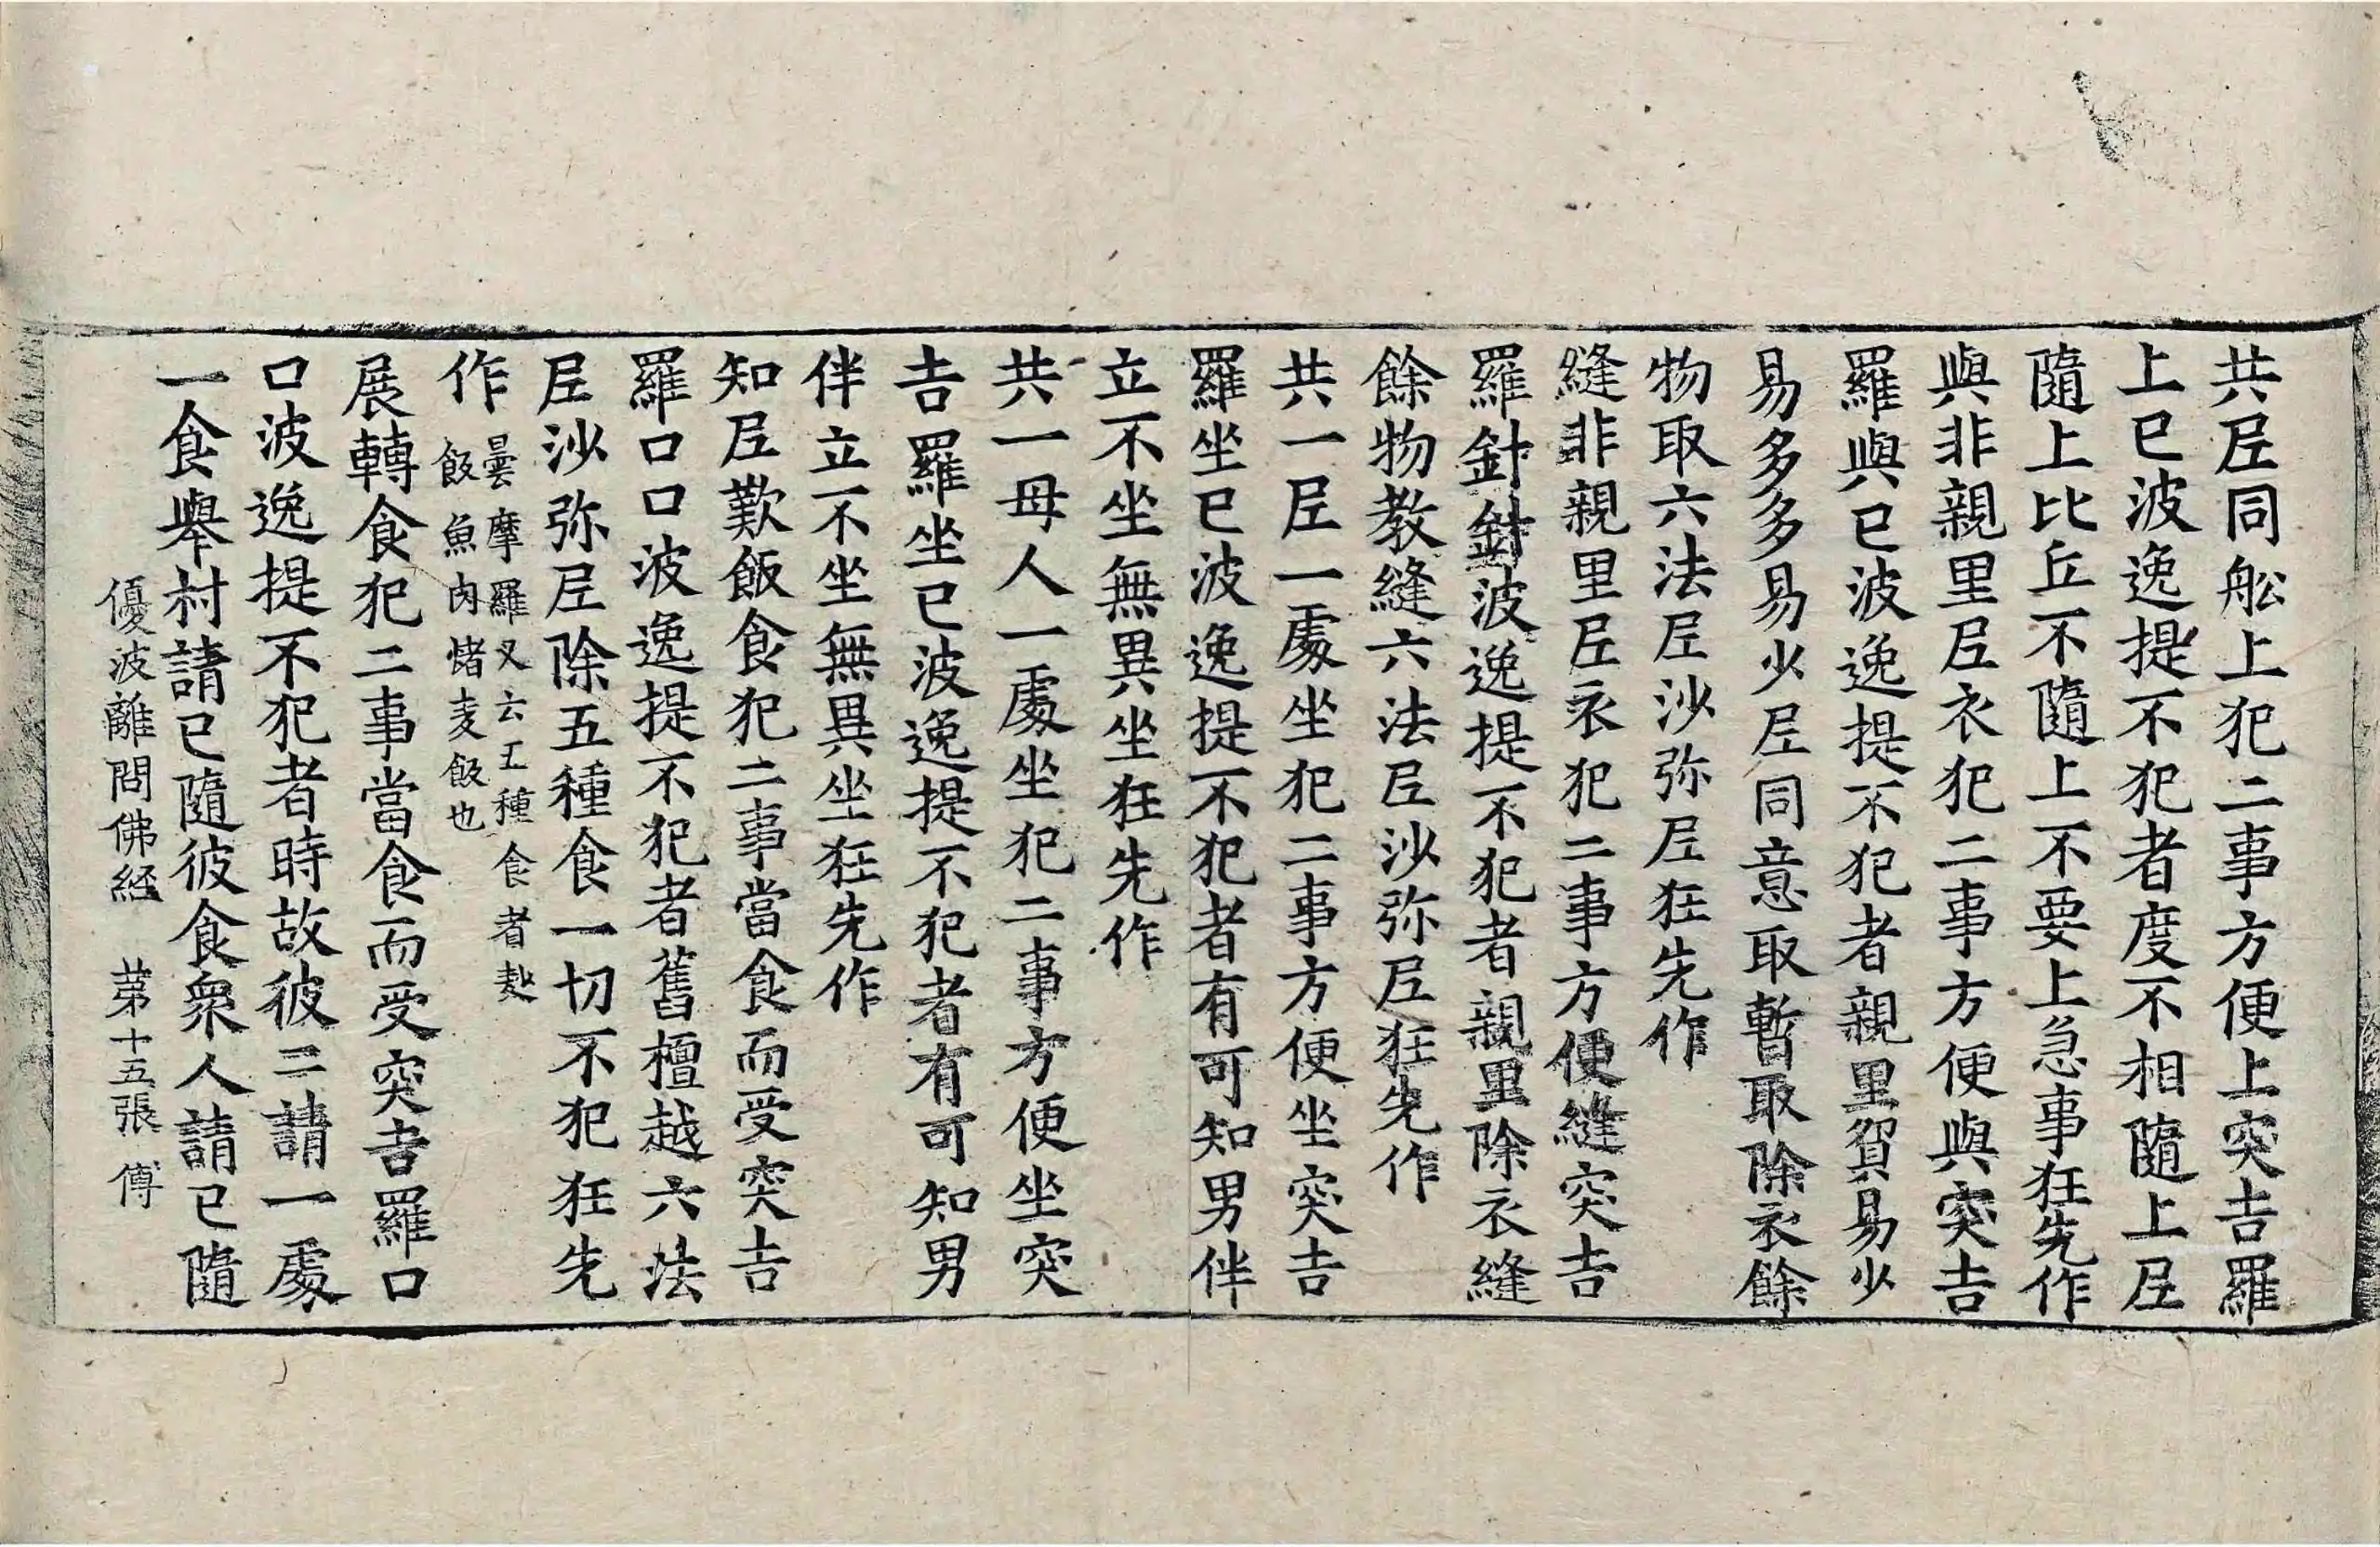 共尼同舩上犯二事方便上突吉羅
上已波逸提不犯者度不相隨上尼
隨上比丘不隨上不要上急事狂先作
與非親里尼衣犯二事方便與突吉
羅與已波逸提不犯者親里貿易少
易多多易少尼同意取暫取除衣餘
物取六法尼沙弥尼狂先作
縫非親里尼衣犯二事方便縫突吉
羅針針波逸提不犯者親里除衣縫
餘物教縫六法尼沙弥尼狂先作
共一尼一處坐犯二事方便坐突吉
羅坐已波逸提不犯者有可知男伴
立不坐無異坐狂先作
共一母人一處坐犯二事方便坐突
吉羅坐已波逸提不犯者有可知男
伴立不坐無異坐狂先作
知尼歎飯食犯二事當食而受突吉
羅口口波逸提不犯者舊檀越六法
尼沙弥尼除五種食一切不犯狂先
作
曇摩羅叉云五種食者麨
飯魚肉㷇麦飯也
展轉食犯二事當食而受突吉羅口
口波逸提不犯者時故彼二請一處
一食舉村請已隨彼食衆人請已隨
優波離問佛經 苐十五張 傅